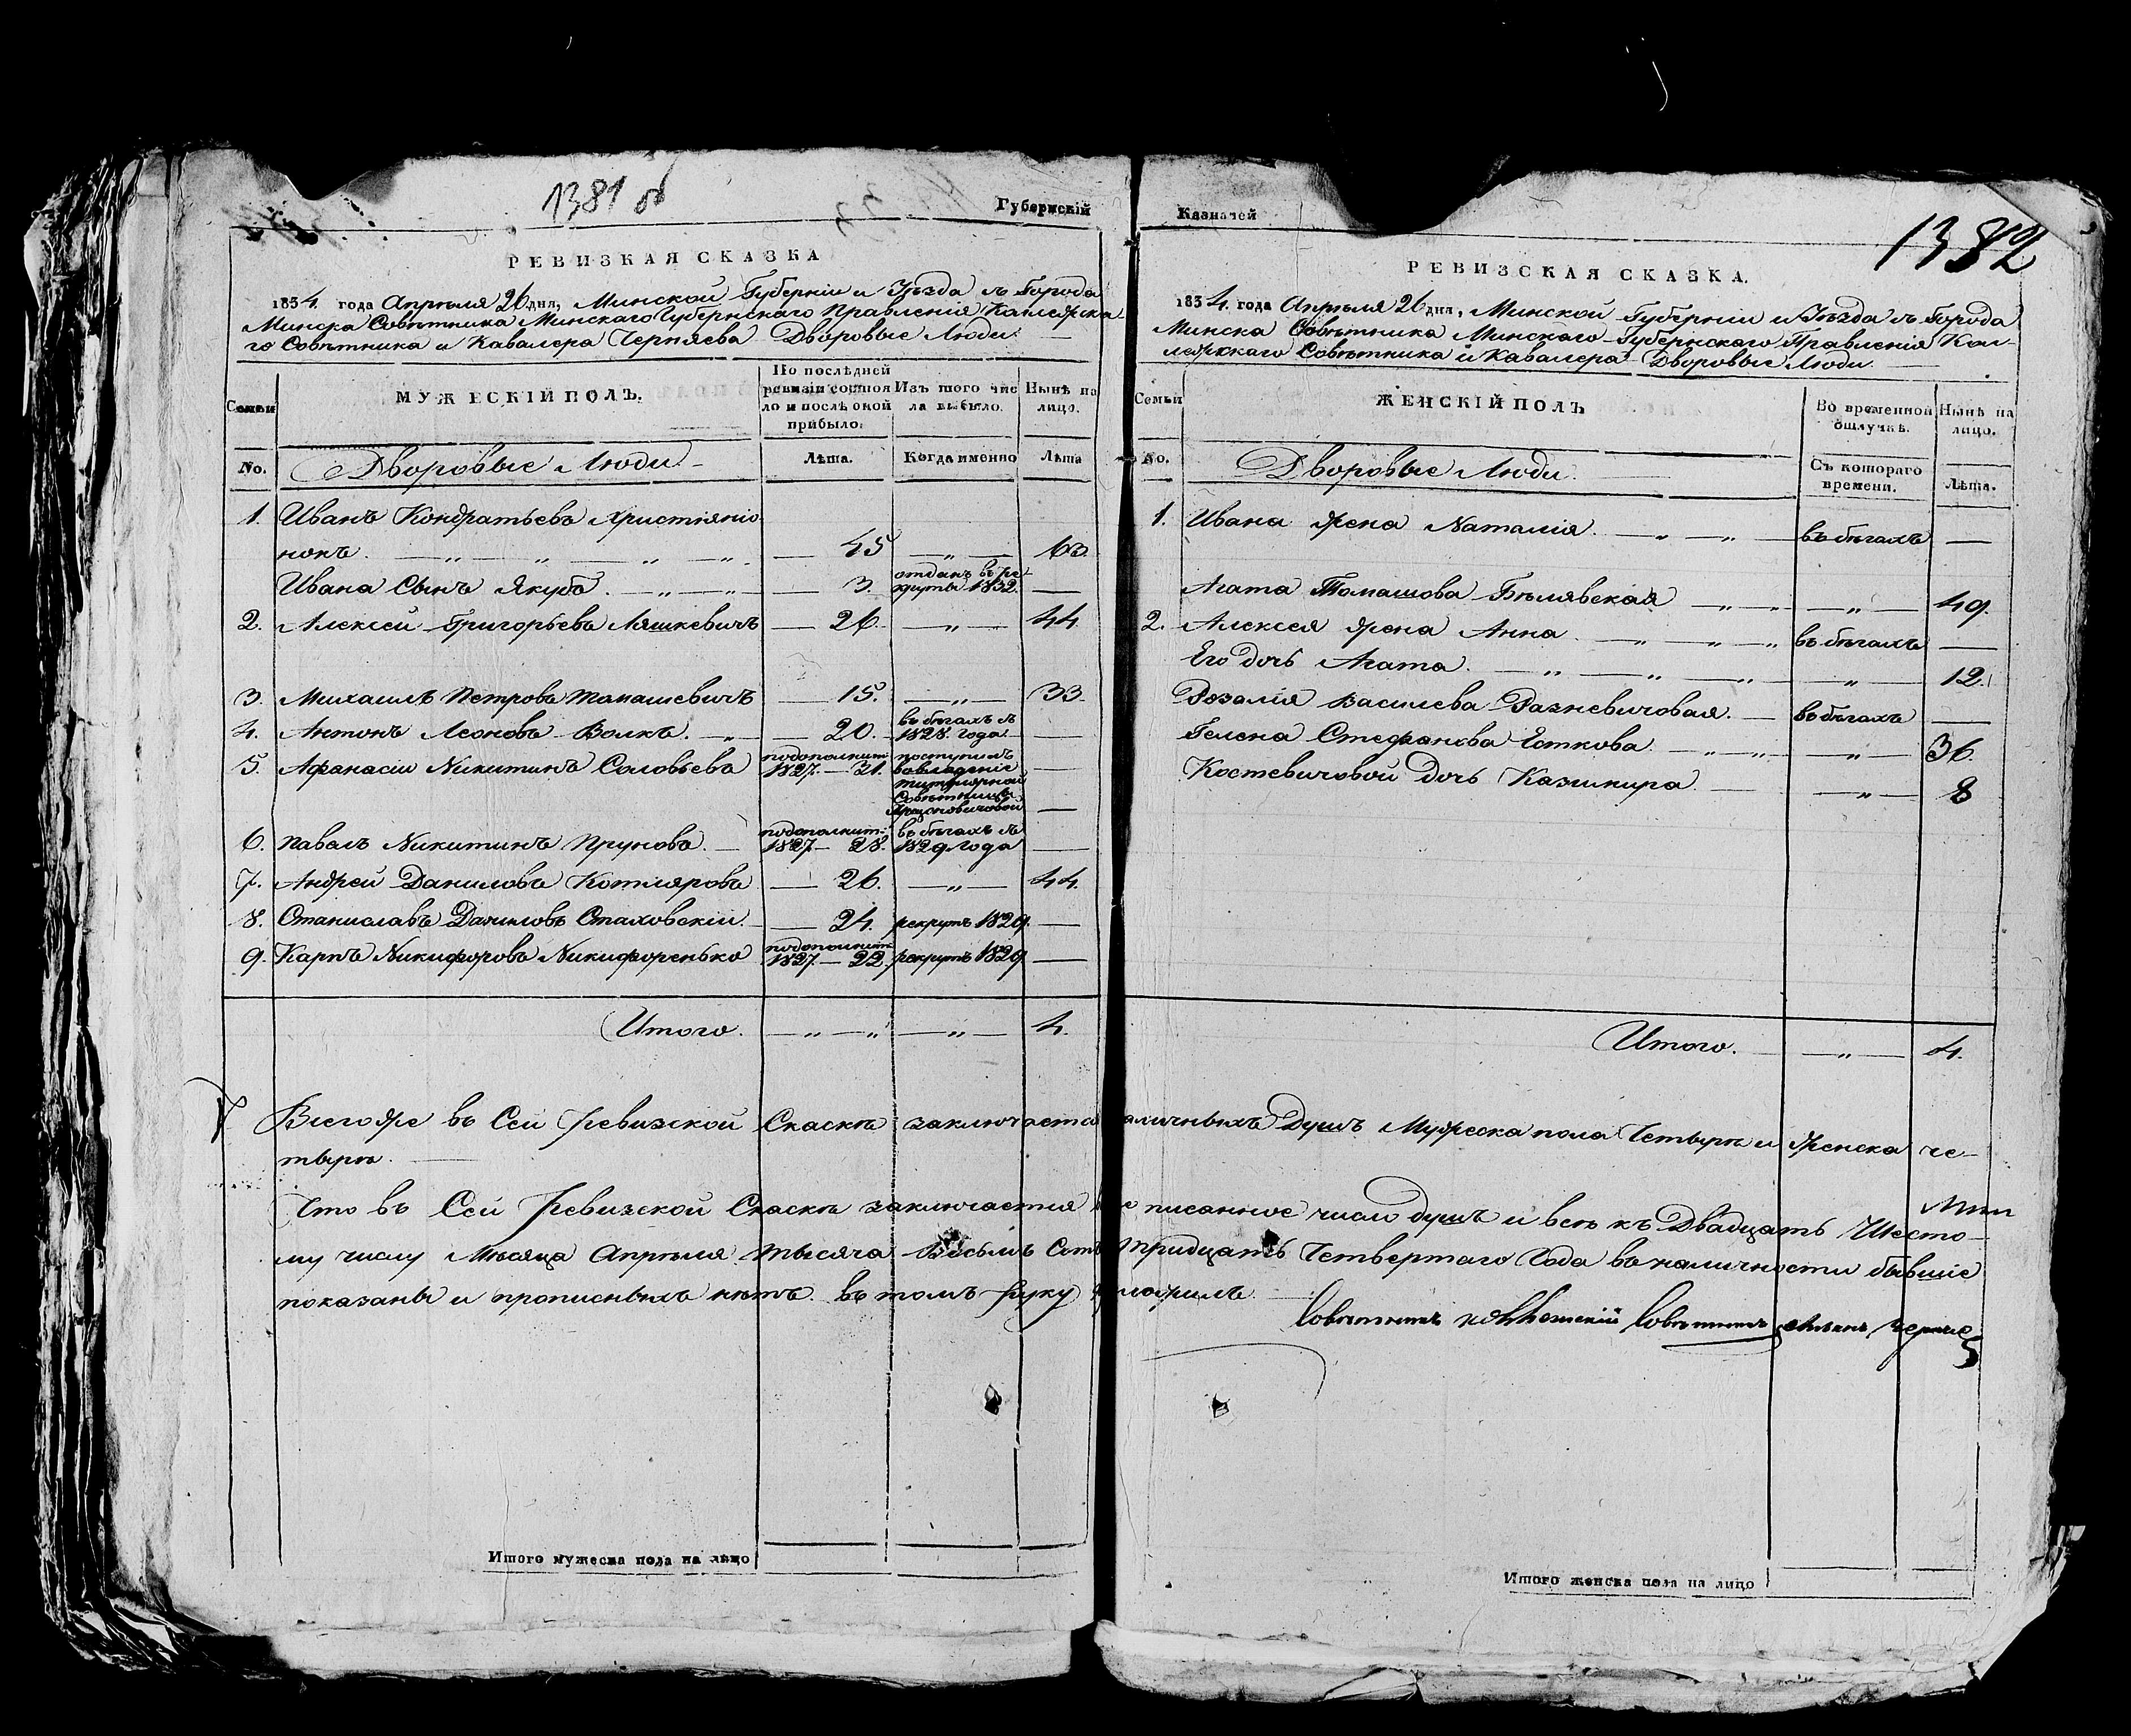 1381 об
Губернскій
РЕВИЗКАЯ СКАЗКА
1834. года Апрѣля 26 дня, Минской Губерніи и Уѣзда г. Города
Минска Совѣтника Минскаго Губернскаго Правленія Коллежска
го Совѣтника и Кавалера Черняева Дворовые Люди.
Семьи
МУЖЕСКІЙ ПОЛЪ.
По послѣдней
ревизіи состоя
ло и послѣ оной
прибыло.
Изъ того чис
ла выбыло.
Нынѣ на
лицо.
No.
Дворовые Люди.
Лѣта.
Когда именно
Лѣта
1. Иванъ Кондратьевъ Христіяніо
нокъ. — „ — „ — „ — „ — 45 — „ — 63.
Ивана Сынъ Якубъ. — „ — „ — 3. отданъ въ ре
круты 1832. —
2. Алексей Григорьевъ Ляшкевичъ — 26. — „ — 44.
3. Михаилъ Петровъ Томашевичъ — 15. — „ — 33.
4. Антонъ Леоновъ Волкъ. — „ — 20. въ бѣгахъ съ
1828. года —
5. Афанасіи Никитинъ Соловьевъ подополнит.
1827. — 31. поступилъ
во владѣніе
титулярной
Совѣтницы
—
6. Павалъ Никитинъ Пруновъ. — подополнит.
1827. — 28. въ бѣгахъ съ
1829 года —
7. Андрей Даниловъ Котляровъ — 26. — „ — 44.
8. Станиславъ Даниловъ Стаховскіи. — 24. рекрутъ 1829. —
9. Карпъ Никифоровъ Никифоренько подополнит.
1827. — 22. рекрутъ 1829 —
Итого. — „ — „ — „ — 4.
Казначей
1382
РЕВИЗСКАЯ СКАЗКА.
1834. года Апрѣля 26 дня, Минской Губерніи и Уѣзда г. Города
Минска Совѣтника Минскаго Губернскаго Правленія Кол-
лежскаго Совѣтника и Кавалера Дворовые Люди.
Семьи
ЖЕНСКІЙ ПОЛЪ
Во временной
отлучкѣ.
Нынѣ на
лицо.
No.
Дворовые Люди.
Съ котораго
времени.
Лѣта.
1. Ивана жена Наталія. — „ — „ — въ бѣгахъ —
Агата Томашова Бѣлявская — „ — „ — „ — 49.
2. Алексея жена Анна. — „ — „ — „ въ бѣгахъ —
Его дочь Агата. — „ — „ — „ — „ — 12.
Розалія Василева Разневичовая. — въ бѣгахъ —
Гелена Стефанова Еткова. — „ — „ — „ — 36.
Костевичовой дочь Казимира. — „ — 8
Итого. — „ — 4.
Всегоже въ Сей Ревизской Скаскѣ заключается наличныхъ Душъ Мужеска пола Четыре и Женска че-
тыре.
Что въ Сей Ревизской Скаскѣ заключается писанное число душъ и всѣ къ Двадцать Шесто-
му числу Мѣсяца Апрѣля тысяча восемь Сотъ тридцать Четвертаго Года въ наличности бывшіе
показаны и прописныхъ нѣтъ въ томъ руку приложилъ.
Совѣтникъ
Итого мужеска пола на лицо
Итого женска пола на лицо